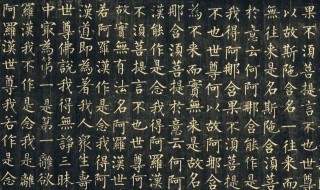 果不須菩提言不也世尊
以故斯陀含名一往來而
無往來是名斯陀含須菩
於意云何阿那含能作是
我得阿那含果不須菩提
不也世尊何以故阿那含
為不來而實無來是故名
那含須菩提於意云何阿
漢能作是念我得阿羅漢
不須菩提言不也世尊何
故實無有法名阿羅漢世
若阿羅漢作是念我得阿
漢道即為著我人眾生壽
世尊佛說我得無諍三昧
中寂為第一是第一離欲
羅漢我不作是念我是離
阿羅漢世尊我若作是念